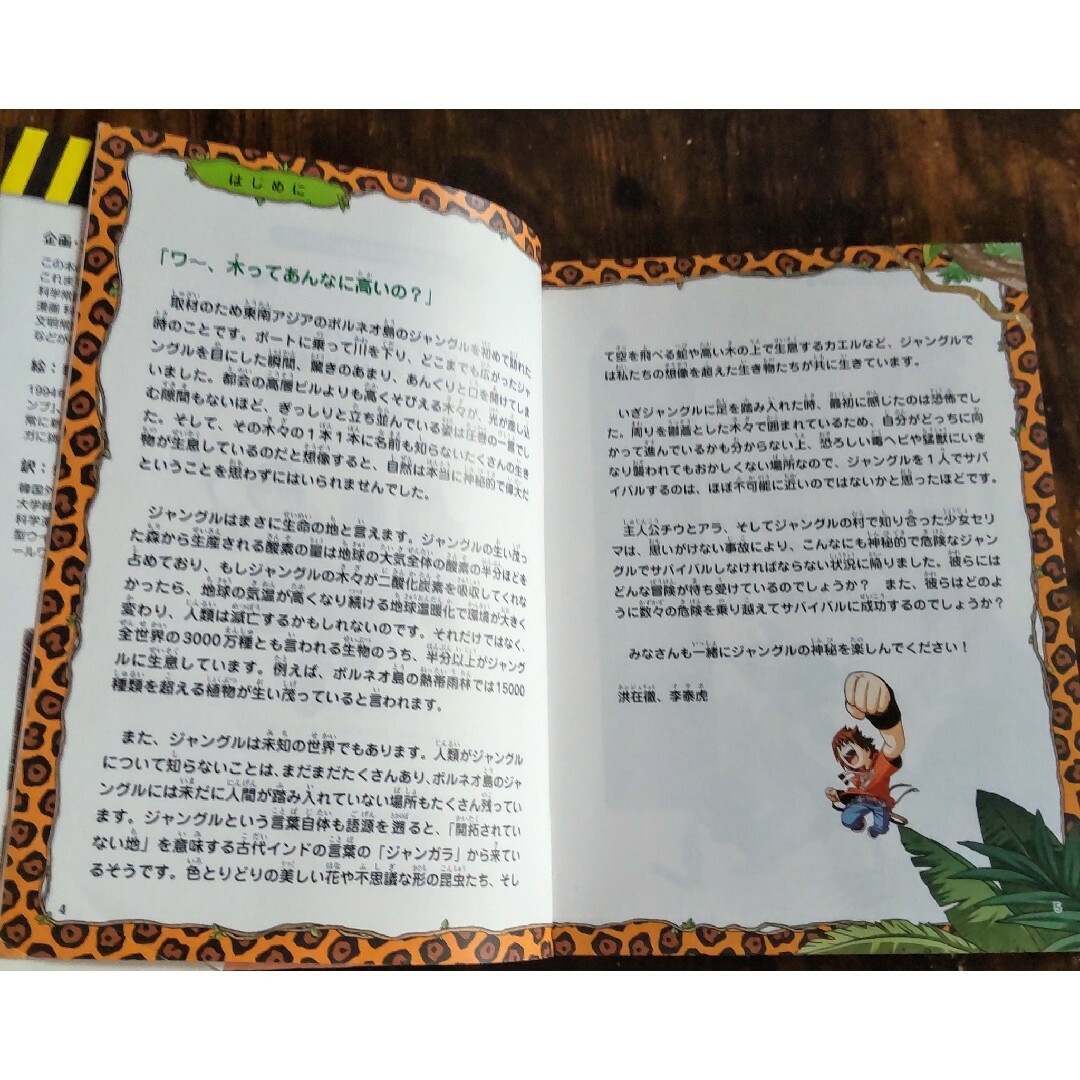 はじめに
「ワ〜、木ってあんなに高いの？」
取材のため東南アジアのボルネオ島のジャングルを初めて訪れた
時のことです。ボートに乗って川を下り、どこまでも広がったジャ
ングルを目にした瞬間、驚きのあまり、あんぐりと口を開けてしま
いました。都会の高層ビルよりも高くそびえる木々が、光が差し込
む隙間もないほど、ぎっしりと立ち並んでいる姿は圧巻の一言でし
た。そして、その木々の1本1本に名前も知らないたくさんの生き
物が生息しているのだと想像すると、自然は本当に神秘的で偉大だ
ということを思わずにはいられませんでした。
ジャングルはまさに生命の地と言えます。ジャングルの生い茂っ
た森から生産される酸素の量は地球の大気全体の酸素の半分ほどを
占めており、もしジャングルの木々が二酸化炭素を吸収してくれな
かったら、地球の気温が高くなり続ける地球温暖化で環境が大きく
変わり、人類は滅亡するかもしれないのです。それだけではなく、
全世界の3000万種とも言われる生物のうち、半分以上がジャング
ルに生息しています。例えば、ボルネオ島の熱帯雨林では15000
種類を超える植物が生い茂っていると言われます。
また、ジャングルは未知の世界でもあります。人類がジャングル
について知らないことは、まだまだたくさんあり、ボルネオ島のジャ
ングルには未だに人間が踏み入れていない場所もたくさん残ってい
ます。ジャングルという言葉自体も語源を遡ると、「開拓されてい
ない地」を意味する古代インドの言葉の「ジャンガラ」から来てい
るそうです。色とりどりの美しい花や不思議な形の昆虫たち、そし
4
て空を飛べる蛇や高い木の上で生息するカエルなど、ジャングルで
は私たちの想像を超えた生き物たちが共に生きています。
いざジャングルに足を踏み入れた時、最初に感じたのは恐怖でし
た。周りを鬱蒼とした木々で囲まれているため、自分がどっちに向
かって進んでいるかも分からない上、恐ろしい毒ヘビや猛獣にいき
なり襲われてもおかしくない場所なので、ジャングルを1人でサバ
イバルするのは、ほぼ不可能に近いのではないかと思ったほどです。
主人公チウとアラ、そしてジャングルの村で知り合った少女セリ
マは、思いがけない事故により、こんなにも神秘的で危険なジャン
グルでサバイバルしなければならない状況に陥りました。彼らには
どんな冒険が待ち受けているのでしょうか？ また、彼らはどのよ
うに数々の危険を乗り越えてサバイバルに成功するのでしょうか？
みなさんも一緒にジャングルの神秘を楽しんでください！
洪在徹、李泰虎
5
企画・
この本
これま
科学常
漫画 科
文明常
などが
絵：
1994
ンプ」
常に
方に
訳：
韓国外
大学韓
科学
型ウー
ールワ